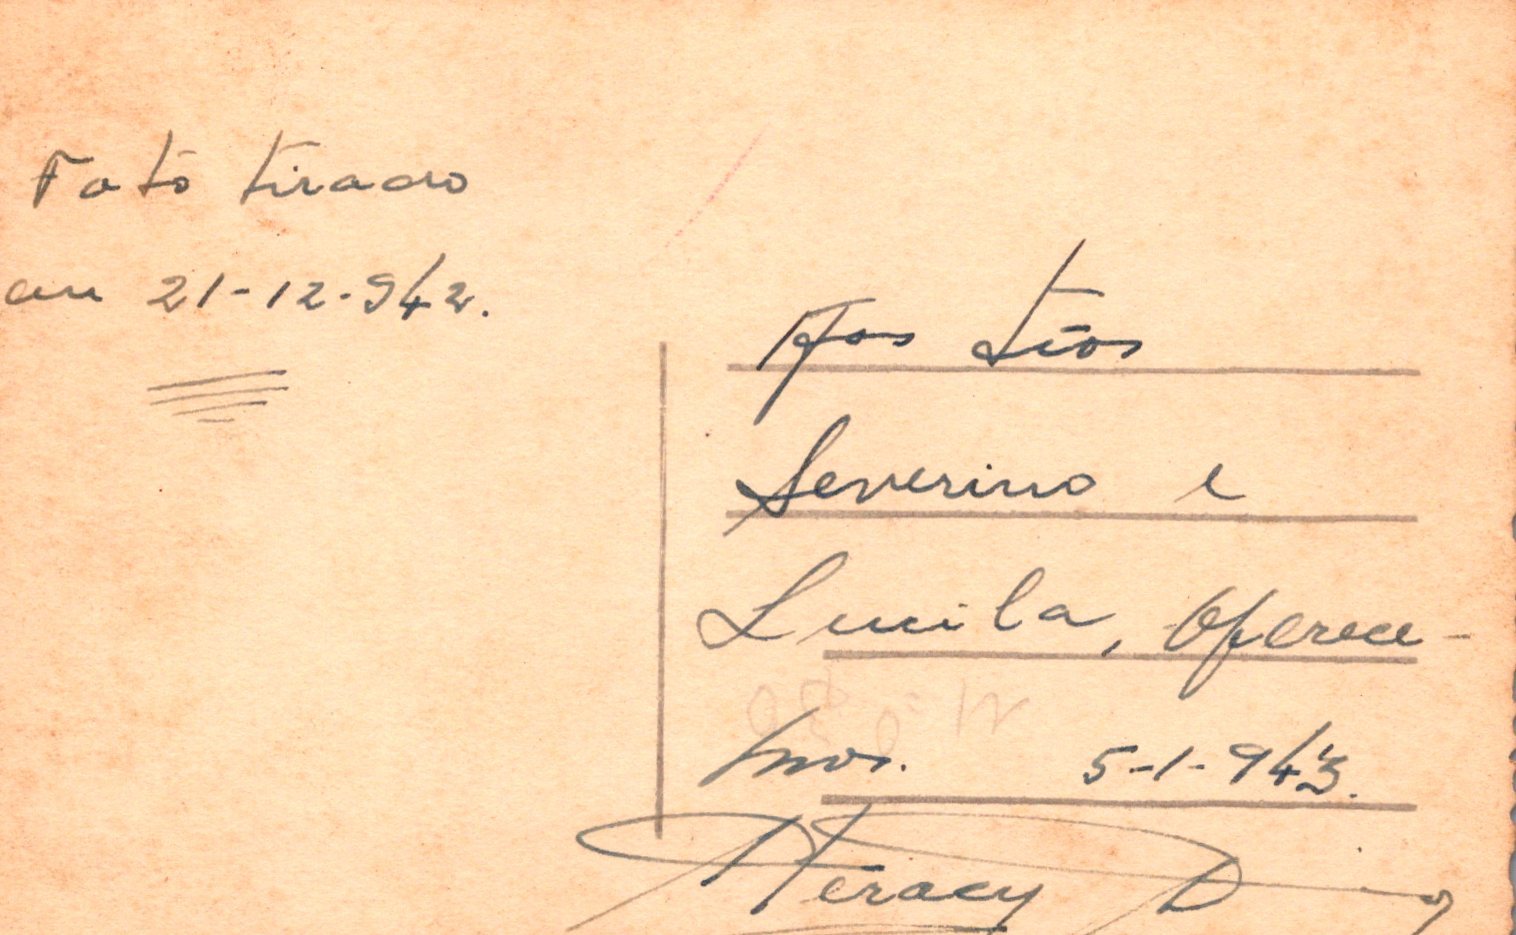 Foto tirado
em 21-12-942.
Aos tios
Severino e
Lucila, oferece-
mos. 5-1-943.
Heracy D